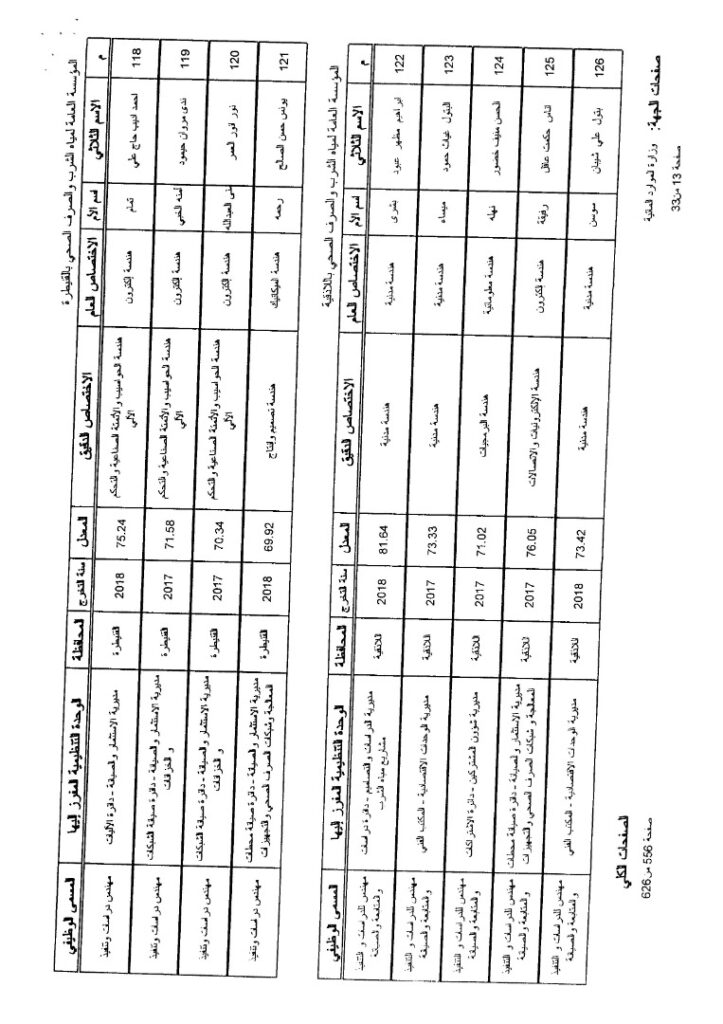 المؤسسة العامة لمياه الشرب والصرف الصحي بالقنيطرة
م الاسم الثلاثي اسم الأم الاختصاص العام الاختصاص الدقيق المعدل سنة التخرج المحافظة الوحدة التنظيمية المفرز إليها المسمى الوظيفي
118 احمد اديب حاج علي تمام هندسة إلكترون هندسة الحواسيب والأتمتة الصناعية والتحكم الآلي 75.24 2018 القنيطرة مديرية الاستثمار والصيانة - دائرة الآليات مهندس دراسات وتنفيذ
119 ندى مروان حيمود آمنه الخني هندسة إلكترون هندسة الحواسيب والأتمتة الصناعية والتحكم الآلي 71.58 2017 القنيطرة مديرية الاستثمار والصيانة - دائرة صيانة الشبكات و الخزانات مهندس دراسات وتنفيذ
120 نور انور العمر منى العبدالله هندسة إلكترون هندسة الحواسيب والأتمتة الصناعية والتحكم الآلي 70.34 2017 القنيطرة مديرية الاستثمار والصيانة - دائرة صيانة الشبكات و الخزانات مهندس دراسات وتنفيذ
121 يونس حسن الصالح رحمه هندسة الميكانيك هندسة تصميم وإنتاج 69.92 2018 القنيطرة مديرية الاستثمار والصيانة - دائرة صيانة محطات المعالجة وشبكات الصرف الصحي والتجهيزات مهندس دراسات وتنفيذ
المؤسسة العامة لمياه الشرب والصرف الصحي باللاذقية
م الاسم الثلاثي اسم الأم الاختصاص العام الاختصاص الدقيق المعدل سنة التخرج المحافظة الوحدة التنظيمية المفرز إليها المسمى الوظيفي
122 ابراهيم مظهر عبود بشرى هندسة مدنية هندسة مدنية 81.64 2018 اللاذقية مديرية الدراسات والتصاميم - دائرة دراسات مشاريع مياه الشرب مهندس للدراسات و التنفيذ والمتابعة والصيانة
123 البتول غياث حمود ميساء هندسة مدنية هندسة مدنية 73.33 2017 اللاذقية مديرية الوحدات الاقتصادية - المكتب الفني مهندس للدراسات و التنفيذ والمتابعة والصيانة
124 الحسن منيف خضور نهله هندسة معلوماتية هندسة البرمجيات 71.02 2017 اللاذقية مديرية شؤون المشتركين - دائرة الاشتراكات مهندس للدراسات و التنفيذ والمتابعة والصيانة
125 الناس حكمت عاقل رفيقة هندسة إلكترون هندسة الإلكترونيات والاتصالات 76.05 2017 اللاذقية مديرية الاستثمار والصيانة - دائرة صيانة محطات المعالجة و شبكات الصرف الصحي والتجهيزات مهندس للدراسات و التنفيذ والمتابعة والصيانة
126 بتول علي شيبان سوسن هندسة مدنية هندسة مدنية 73.42 2018 اللاذقية مديرية الوحدات الاقتصادية - المكتب الفني مهندس للدراسات و التنفيذ والمتابعة والصيانة
صفحات الجهة: وزارة الموارد المائية
صفحة 13 من 33
الصفحات الكلي
صفحة 556 من 626